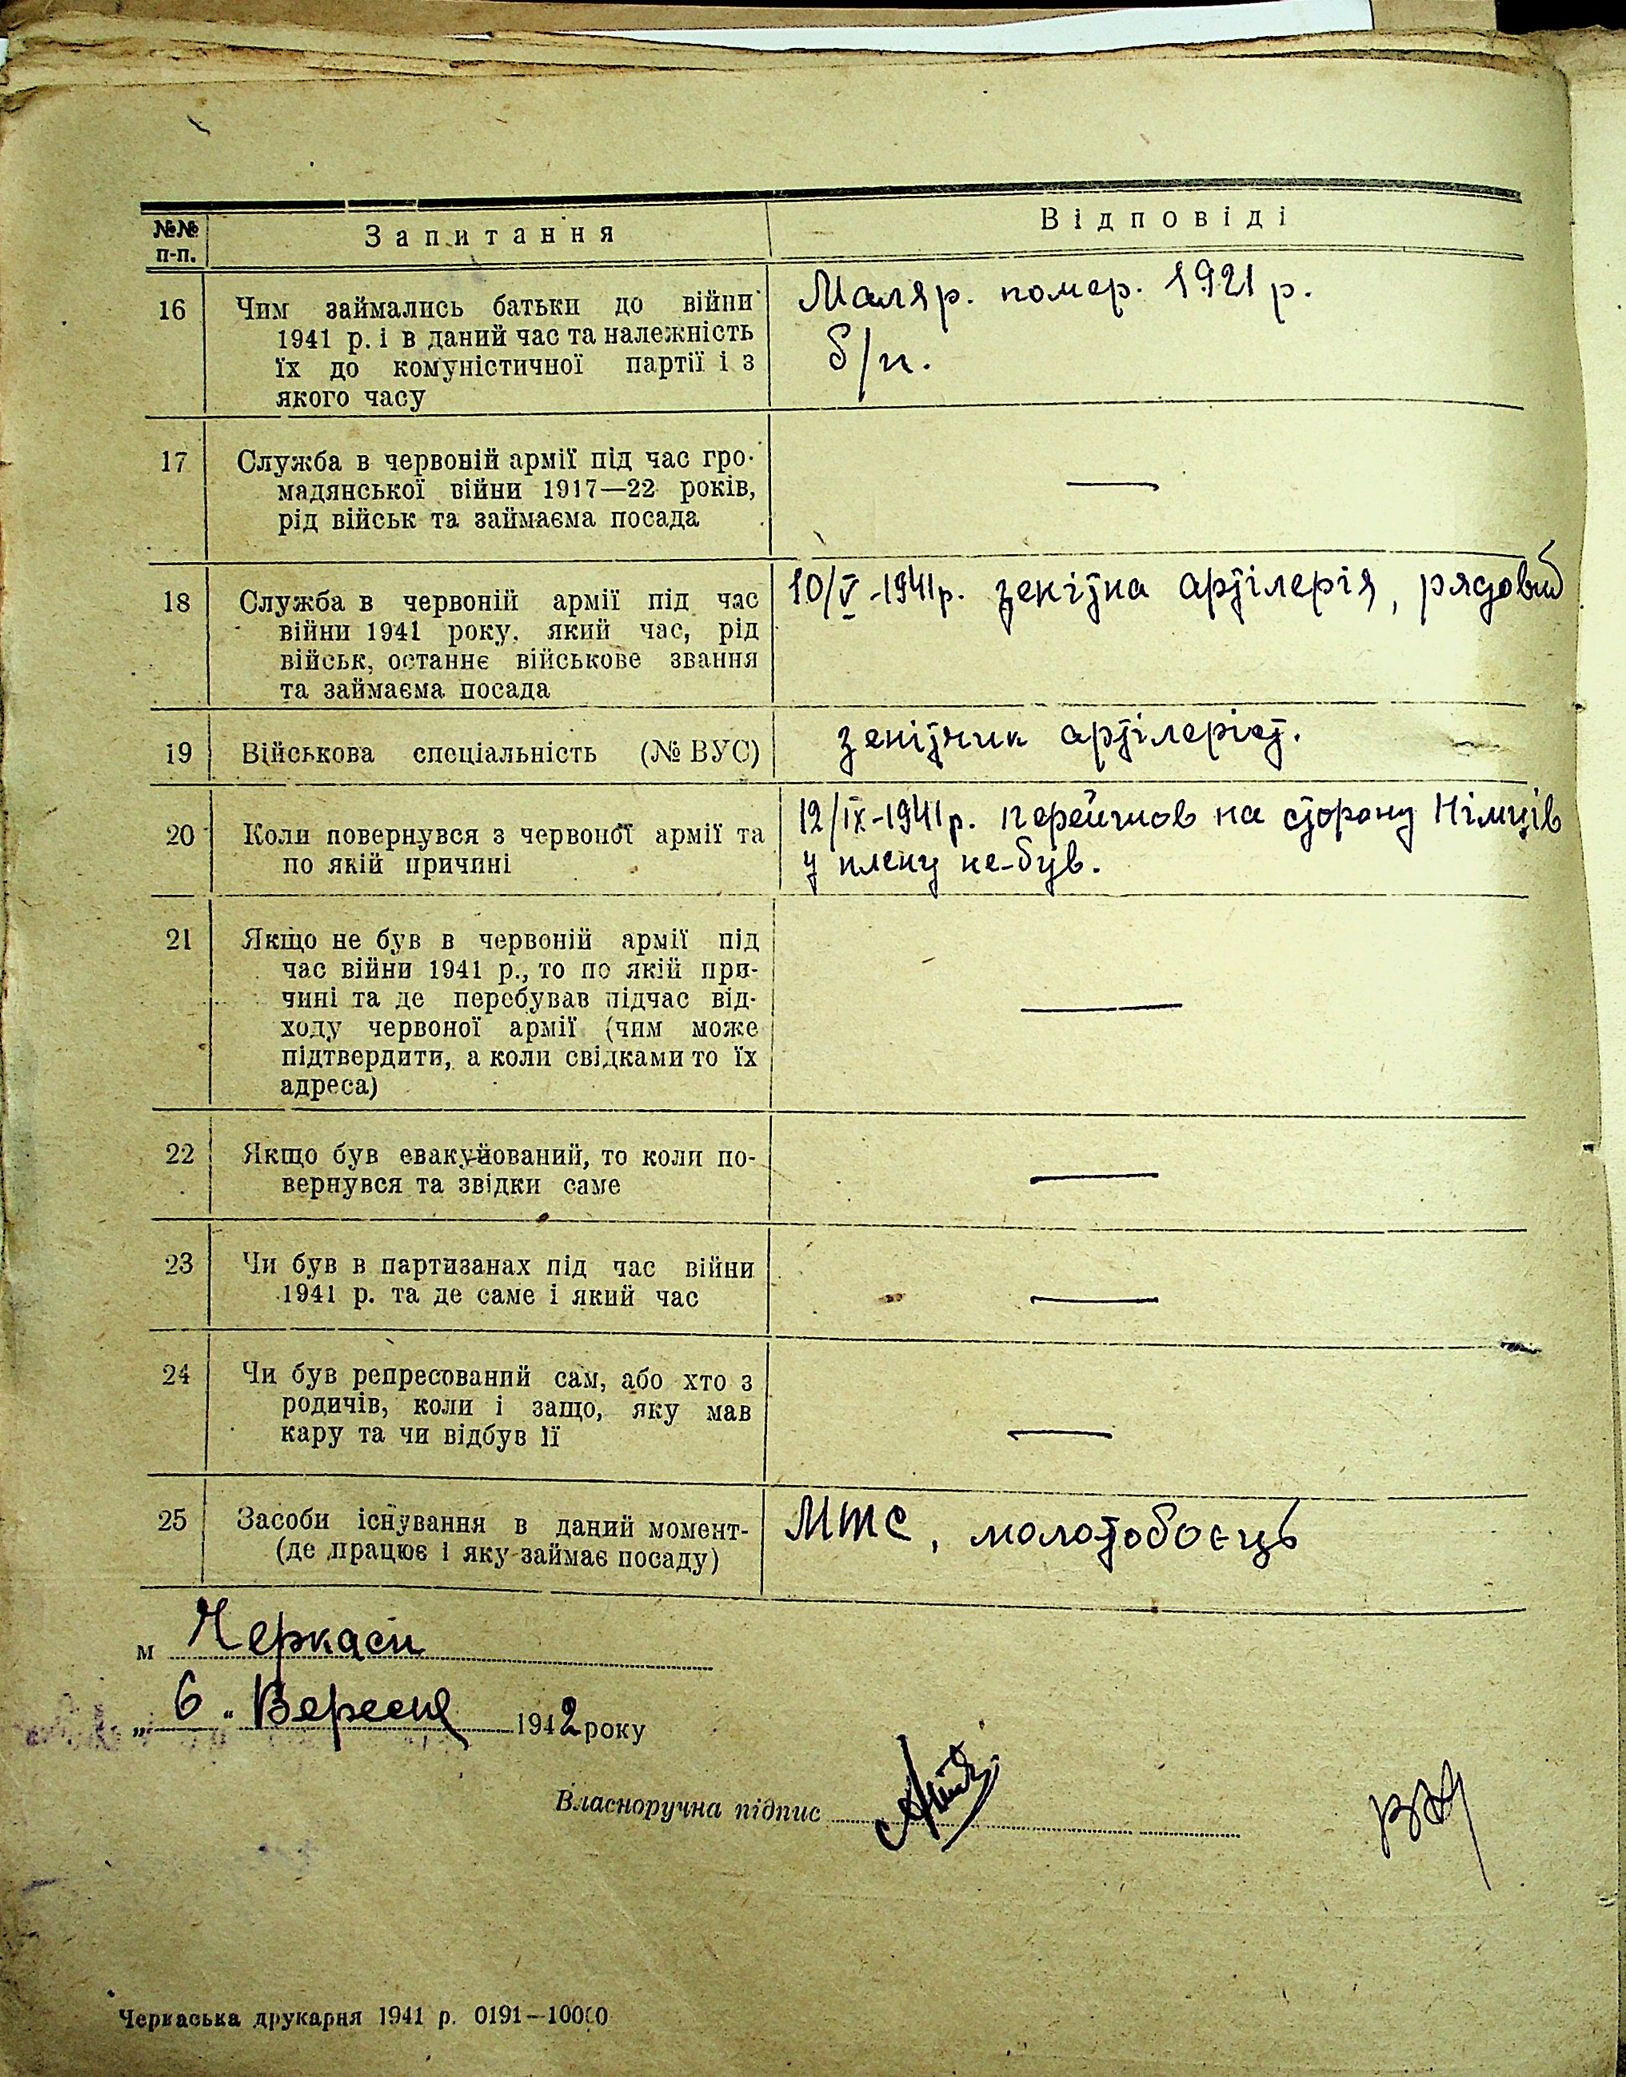 №№ п-п.
Запитання
Відповіді
16
Чим займались батьки до війни
1941 р. і в даний час та належність
їх до комуністичної партії і з
якого часу
Маляр. помер. 1921 р.
б/п.
17
Служба в червоній армії під час гро-
мадянської війни 1917—22 років,
рід військ та займаєма посада
—
18
Служба в червоній армії під час
війни 1941 року, який час, рід
військ, останнє військове звання
та займаєма посада
10/V-1941р. зенітна артілерія, рядовий
19
Військова спеціальність (№ ВУС)
зенітчик артілеріст.
20
Коли повернувся з червоної армії та
по якій причині
12/IX-1941р. перейшов на сторону Німців
у плену не-був.
21
Якщо не був в червоній армії під
час війни 1941 р., то по якій при-
чині та де перебував підчас від-
ходу червоної армії (чим може
підтвердити, а коли свідками то їх
адреса)
—
22
Якщо був евакуйований, то коли по-
вернувся та звідки саме
—
23
Чи був в партизанах під час війни
1941 р. та де саме і який час
—
24
Чи був репресований сам, або хто з
родичів, коли і защо, яку мав
кару та чи відбув її
—
25
Засоби існування в даний момент-
(де працює і яку займає посаду)
МТС, молотобоєць
м Черкаси
„ 6 “ Вересня 1942 року
Власноручна підпис
Черкаська друкарня 1941 р. 0191—10000